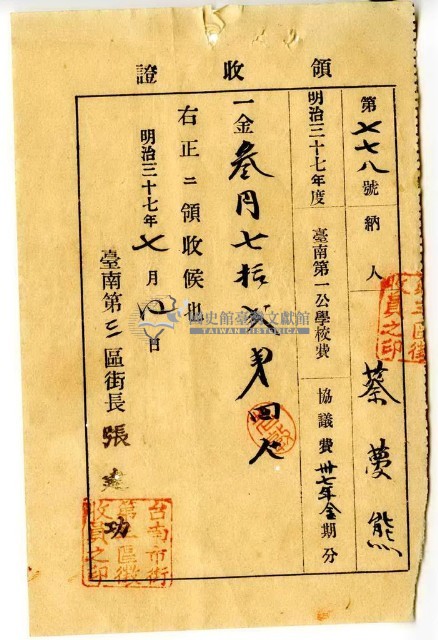 領收證
第七七八號 納人 蔡夢熊
明治三十七年度 臺南第一公學校費 協議費 卅七年全期分
一金叄円七拾貳
右正ニ領收候也
明治三十七年七月 日
臺南第三區街長 張 功
台南市街
第三區徵
收員之印
國史館臺灣文獻館
TAIWAN HISTORICA